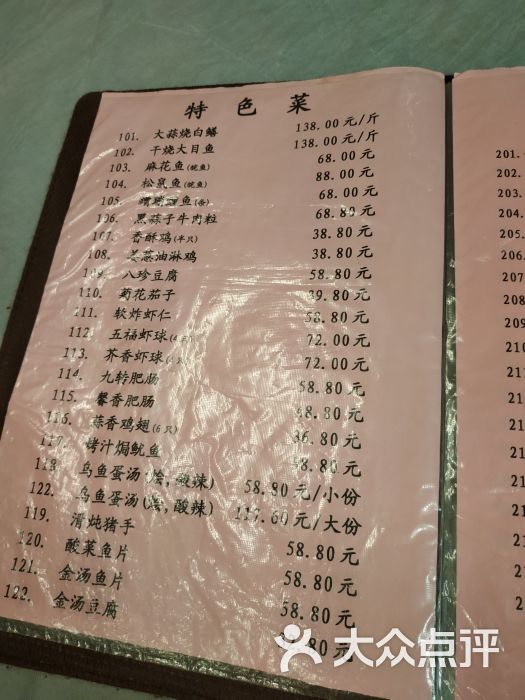 特色菜
101. 大蒜烧白鳝 138.00元/斤
102. 干烧大目鱼 138.00元/斤
103. 麻花鱼(鲩鱼) 68.00元
104. 松鼠鱼(鲩鱼) 88.00元
105. 鱼(条) 68.00元
106. 黑蒜子牛肉粒 68.80元
107. 香酥鸡(半只) 38.80元
108. 姜葱油淋鸡 38.80元
109. 八珍豆腐 58.80元
110. 菊花茄子 39.80元
111. 软炸虾仁 58.80元
112. 五福虾球 72.00元
113. 芥香虾球 72.00元
114. 九转肥肠 58.80元
115. 馨香肥肠 48.80元
116. 蒜香鸡翅(6只) 36.80元
117. 烤汁焗鱿鱼 48.80元
118. 乌鱼蛋汤(烩,酸辣) 58.80元/小份
122. 乌鱼蛋汤(烩,酸辣) 117.60元/大份
119. 滑炖猪手 58.80元
120. 酸菜鱼片 58.80元
121. 金汤鱼片 58.80元
122. 金汤豆腐 .80元
201.
202.
203.
204.
205.
206.
207
208
209
210
211
21
21
21
21
21
21
2
2
2
大众点评